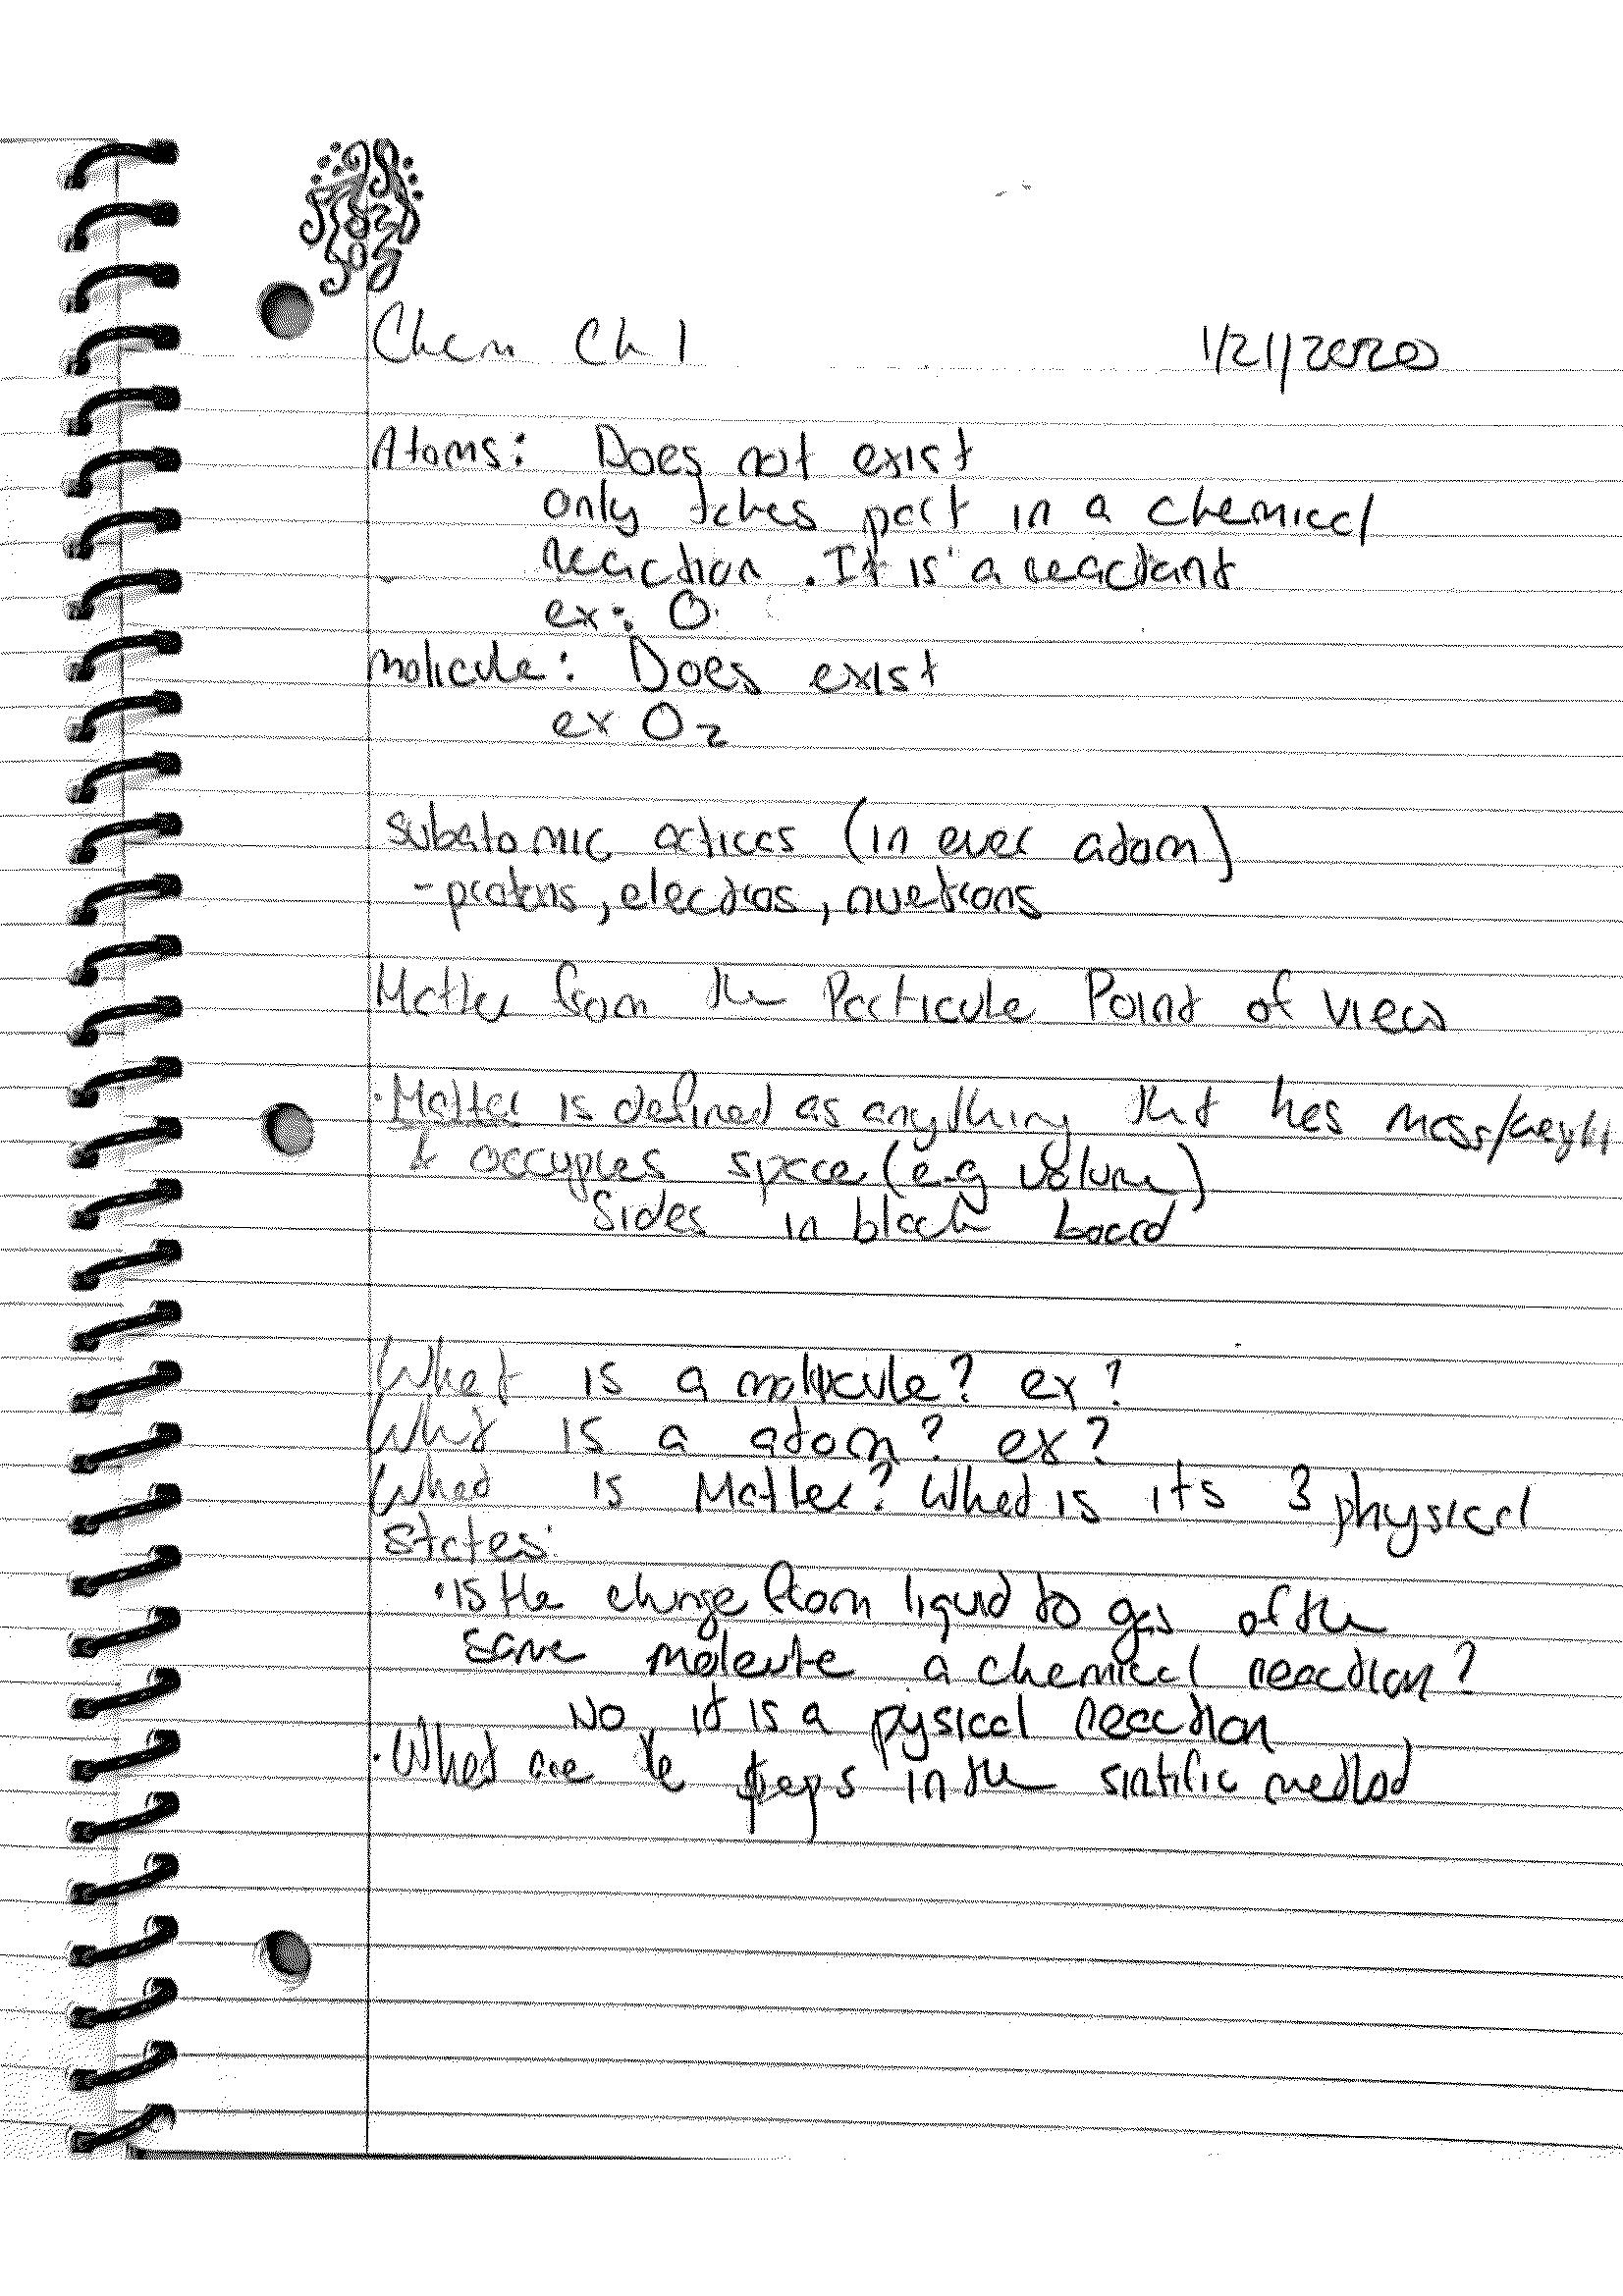 Chem Ch 1 1/21/2020
Atoms: Does not exist
only takes part in a chemical
reaction. It is a reactant
ex: O
molicule: Does exist
ex O2
subatomic acticcs (in ever atom)
- protons, electros, nuetrons
Matter from the Particule Point of view
· Matter is defined as anything that has mass/weyht
& occupies space (e.g volume)
Sides in black board
What is a molicule? ex?
What is a atom? ex?
What is Matter? What is its 3 physical
states:
· is the change from liquid to gas of the
same molecule a chemical reaction?
No it is a pysical reaction
· What are the steps in the sintific method